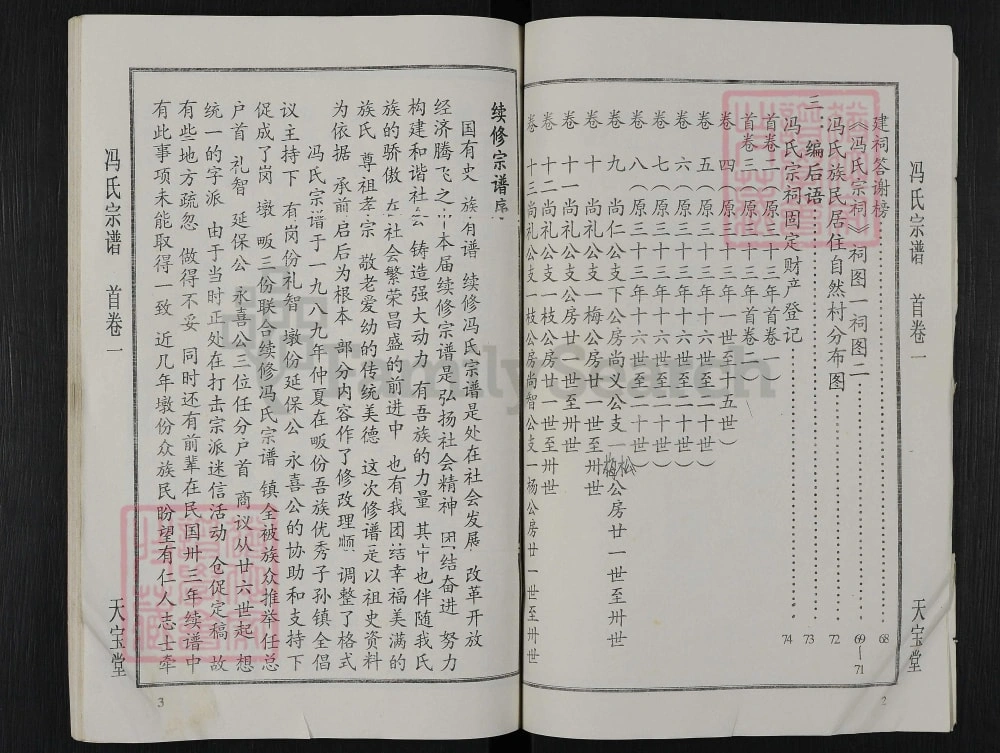 冯氏宗谱 首卷一
天宝堂
建祠答谢榜 68
《冯氏宗祠》祠图一祠图二 69—71
冯氏族民居住自然村分布图 72
三、编后语 73
冯氏宗祠固定财产登记 74
首卷二（原三十三年首卷一）
首卷三（原三十三年首卷二）
卷 四（原三十三年一世至十五世）
卷 五（原三十三年十六世至二十世）
卷 六（原三十三年十六世至二十世）
卷 七（原三十三年十六世至二十世）
卷 八（原三十三年十六世至二十世）
卷 九 尚仁公支下公房尚义公支一松梅公房廿一世至卅世
卷 十 尚礼公支一梅公房廿一世至卅世
卷 十一尚礼公支八公房廿一世至卅世
卷 十二尚礼公支一枝公房廿一世至卅世
卷 十三尚礼公支一枝公房尚智公支一杨公房廿一世至卅世
2
续修宗谱序
国有史 族有谱 续修冯氏宗谱是处在社会发展 改革开放
经济腾飞之中本届续修宗谱是弘扬社会精神 团结奋进 努力
构建和谐社会 铸造强大动力 有吾族的力量 其中也伴随我氏
族的骄傲 在社会繁荣昌盛的前进中 也有我团结幸福美满的
族氏 尊祖孝宗 敬老爱幼的传统美德 这次修谱是以祖史资料
为依据 承前启后为根本 部分内容作了修改理顺 调整了格式
冯氏宗谱于一九八九年仲夏在畈份吾族优秀子孙镇全倡
议主持下 有岗份礼智 墩份延保公 永喜公的协助和支持下
促成了岗 墩 畈三份联合续修冯氏宗谱 镇全被族众推举任总
户首 礼智 延保公 永喜公三位任分户首 商议从廿六世起 想
统一的字派 由于当时正处在打击宗派迷信活动 仓促定稿 故
有些地方疏忽 做得不妥 同时还有前辈在民国卅三年续谱中
有此事项未能取得一致 近几年墩份众族民盼望有仁人志士牵
冯氏宗谱 首卷一
天宝堂
3
FamilySearch